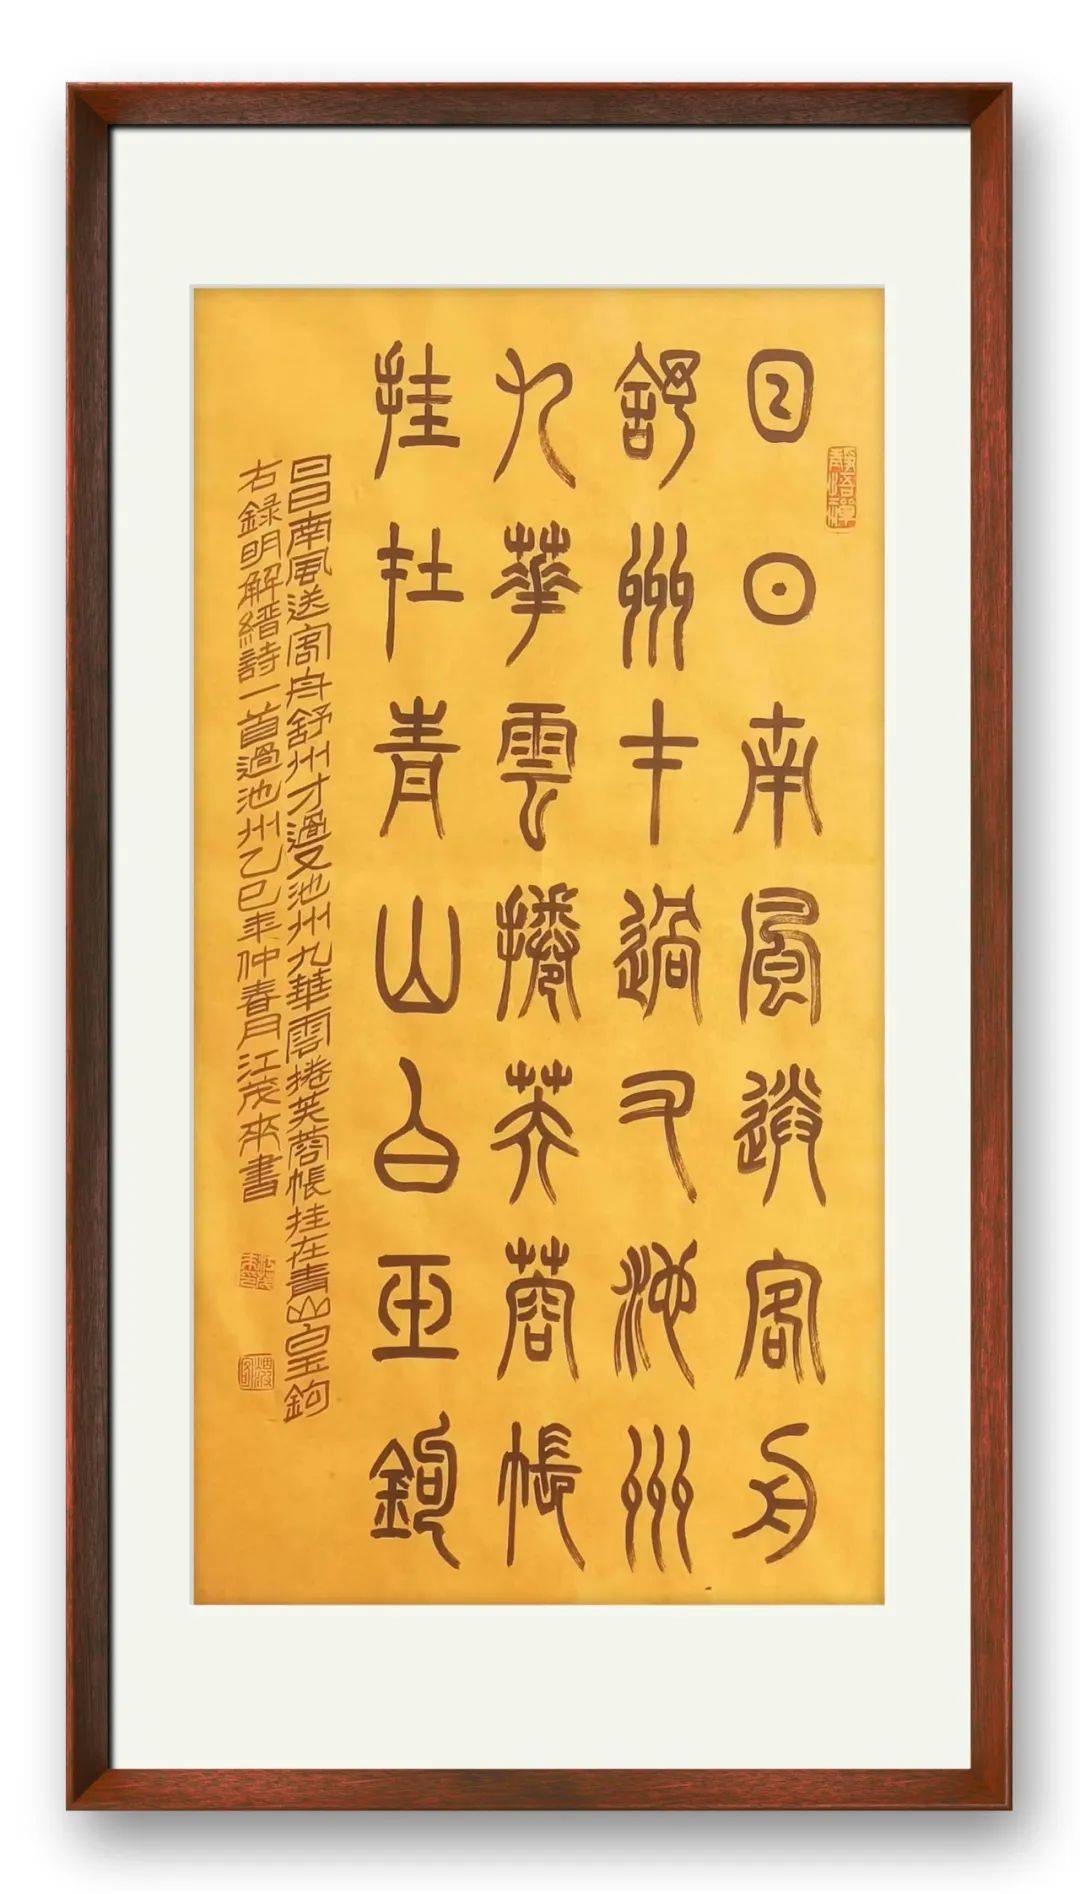 日日南風送客舟
舒州才過又池州
九華雲捲芙蓉帳
挂在青山白玉鉤
日日南風送客舟舒州才過又池州九華雲捲芙蓉帳挂在青山白玉鉤
右録明解縉詩一首過池州乙巳年仲春月江茂來書